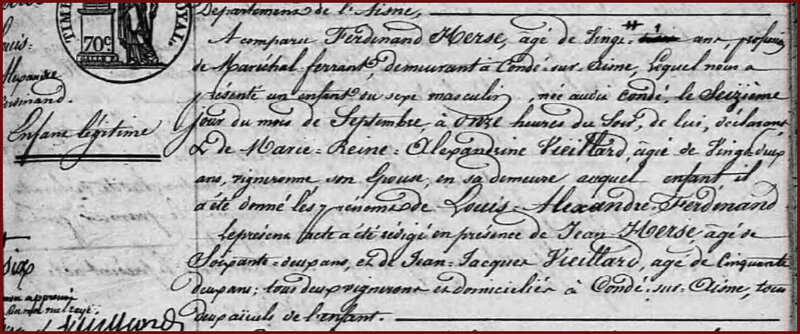 TIMB ROYAL.
70c
ouis=
Alexandre
Ferdinand.
Enfant légitime
Département de l'Aisne,
A comparu Ferdinand Herse, agé de Vingt # ans, profession
de Maréchal ferrant, demeurant à Condé-sur-Aisne, Lequel nous a
présenté un enfant du sexe masculin, née audit Condé, le Seizième
jour du mois de Septembre, à Onze heures du Soir, de lui, déclarant
& de Marie=Reine=Alexandrine Vieillard, agée de Vingt-deux
ans, vigneronne son Epouse, en sa demeure auquel enfant il
a été donné les prénoms de Louis-Alexandre-Ferdinand
Le présent acte a été rédigé en présence de Jean Herse, agé de
Soixante-deux ans, et de Jean-Jacques Vieillard, agé de Cinquante
deux ans; tous deux vignerons et domiciliés à Condé-sur-Aisne, tous
deux aïeuls de l'enfant.
#
six
mot rayé.
Vieillard